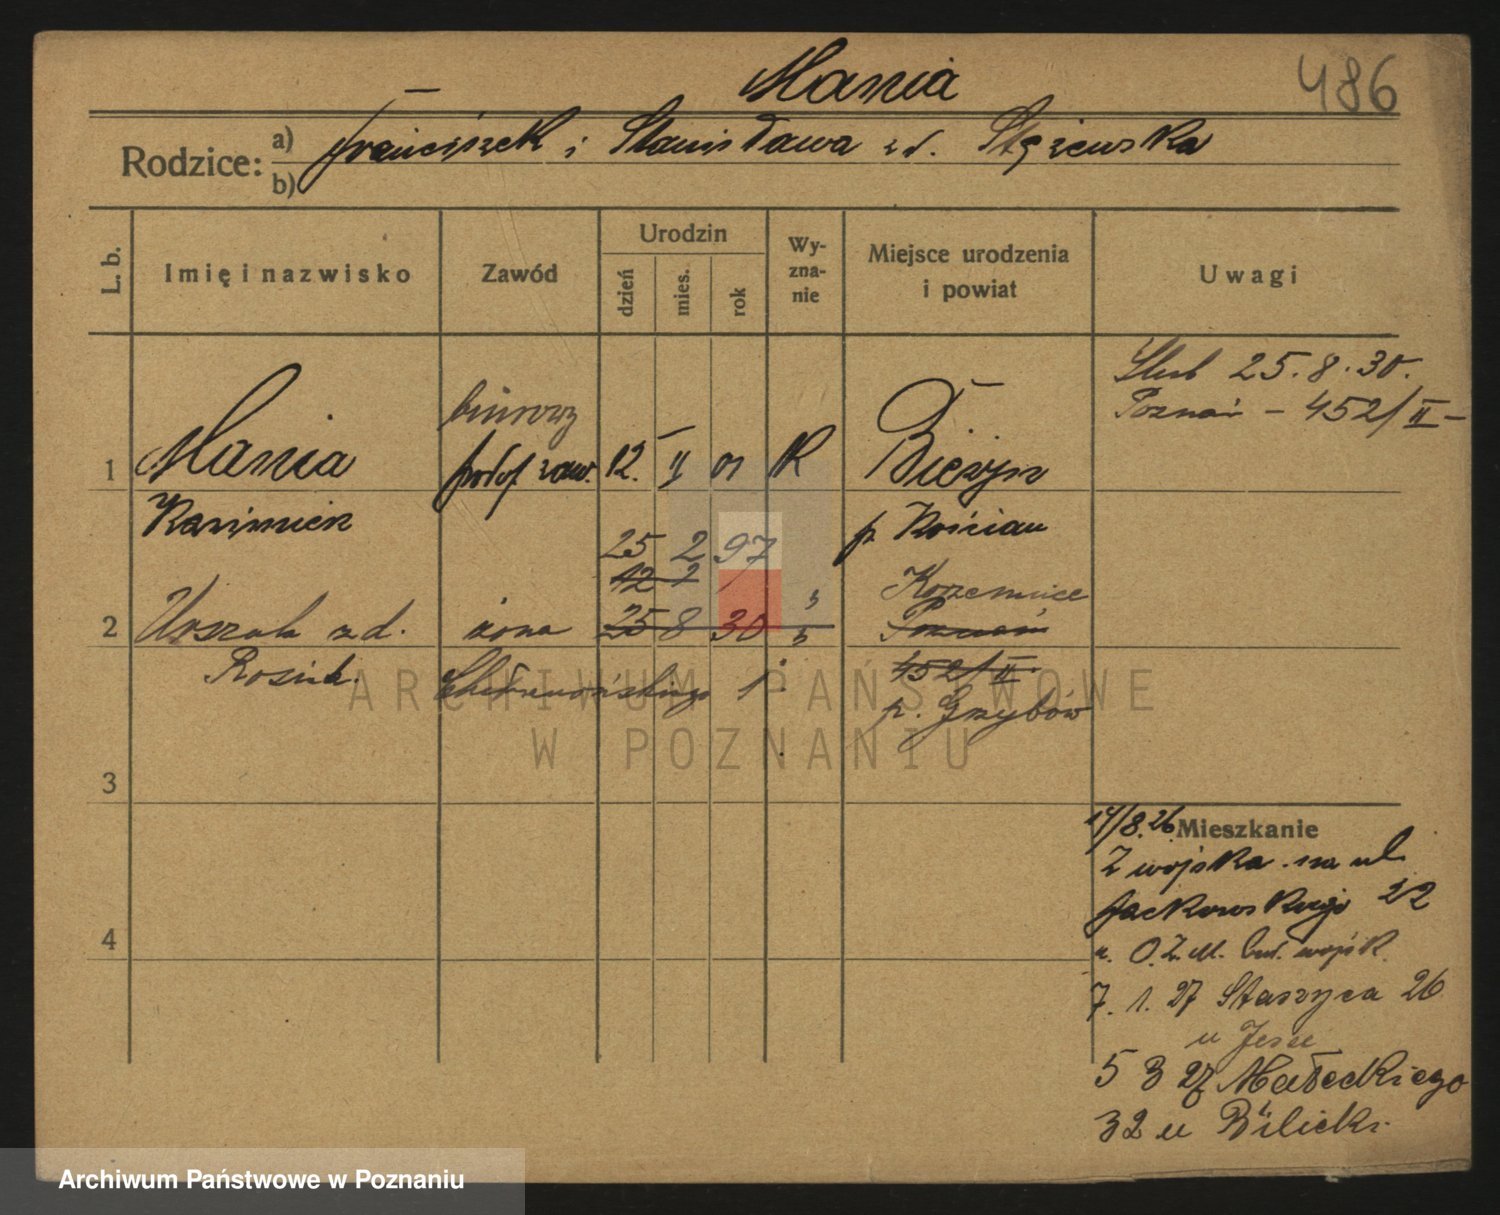 Mania 486
Rodzice: a) Franciszek i Stanisława zd. Stężewska
b)
L. b. Imię i nazwisko Zawód Urodzin dzień mies. rok Wy-zna-nie Miejsce urodzenia i powiat Uwagi
Ślub 25.8.30.
Poznań - 452/II -
biurowy
1 Mania podof. zaw. 12. II 01 R Bieżyn
Kazimierz p. Kościan
25 2 97
12 2 Kozienice
2 Urszula zd. żona 25 8 30 " Poznań
Rosiak 452/II
p. Grzybów
ARCHIWUM PAŃSTWOWE
W POZNANIU
3
14/8.26 Mieszkanie
Z wojska na ul.
Jackowskiego 22
4
u. O.Z.M. bud. wojsk.
7. 1. 27 Staszyca 26
u Jesse
5 3 27 Małeckiego
32 u Bilicki
Archiwum Państwowe w Poznaniu